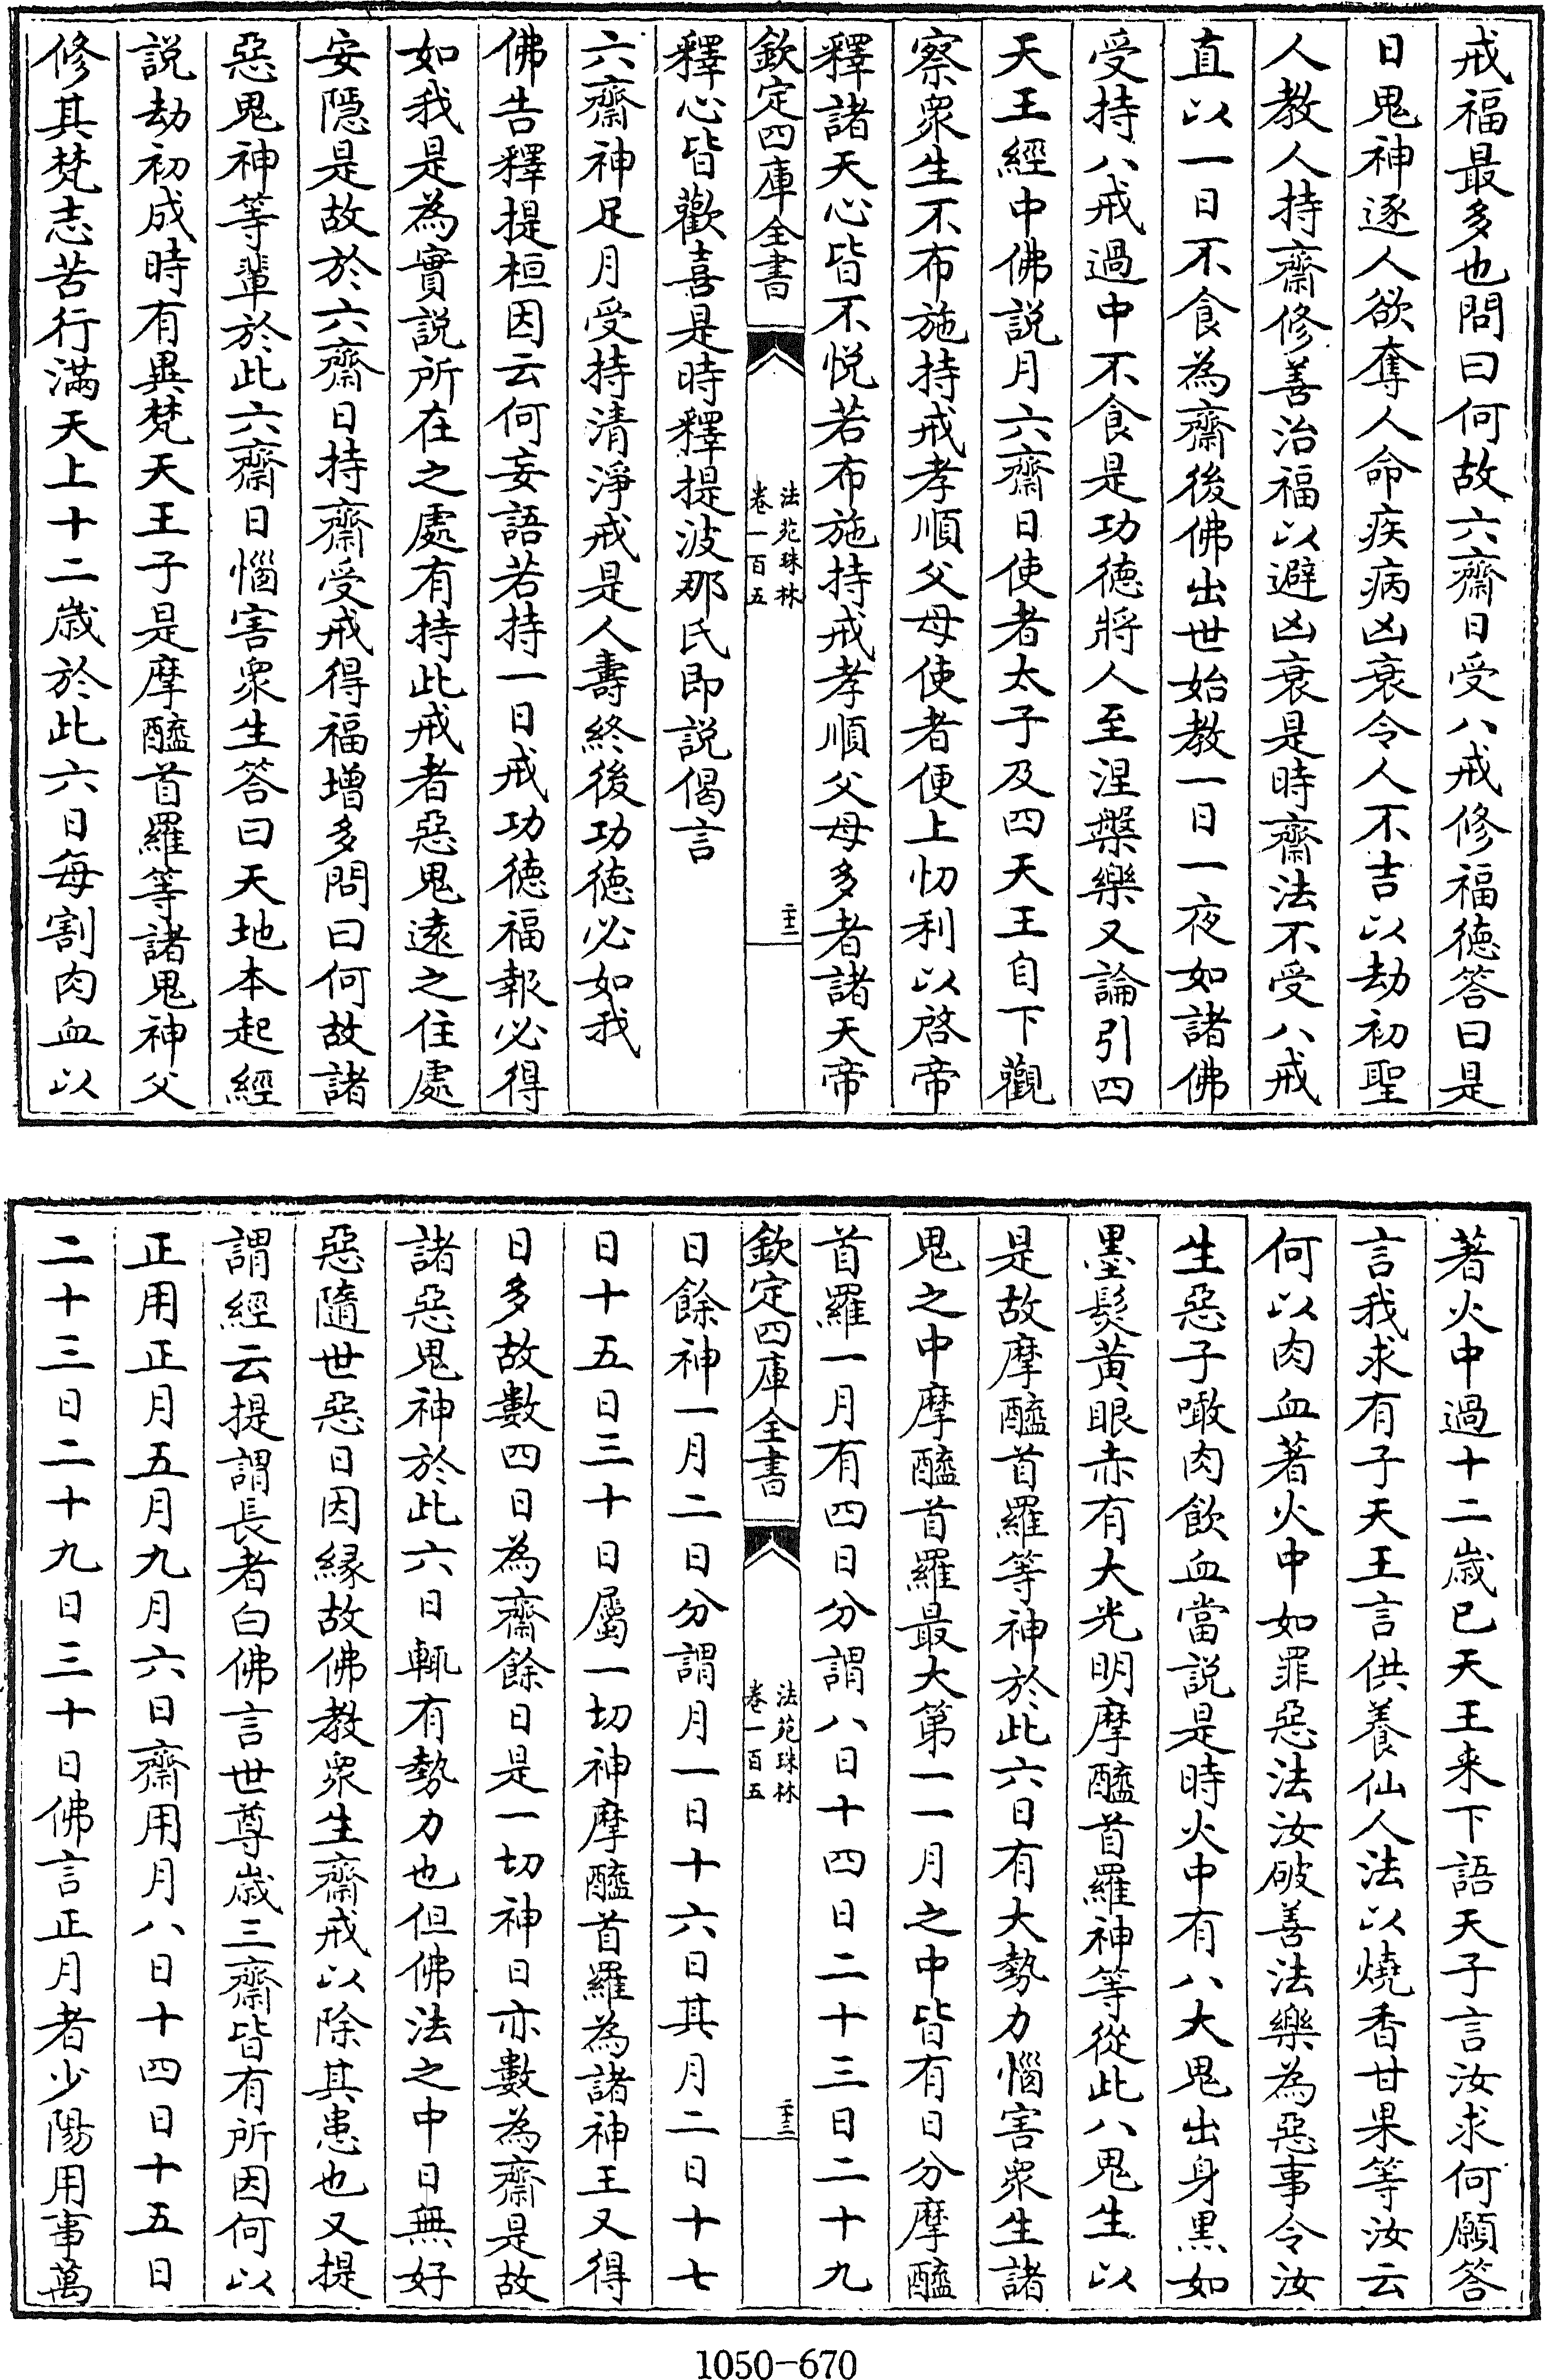 戒福最多也問曰何故六齋日受八戒修福徳答曰是
日鬼神逐人欲奪人命疾病凶衰令人不吉以劫初聖
人教人持齋修善治福以避凶衰是時齋法不受八戒
直以一日不食為齋後佛出世始教一日一夜如諸佛
受持八戒過中不食是功德將人至涅槃樂又論引四
天王經中佛説月六齋日使者太子及四天王自下觀
察衆生不布施持戒孝順父母使者便上忉利以啓帝
釋諸天心皆不悦若布施持戒孝順父母多者諸天帝
欽定四庫全書 法苑珠林 卷一百五 二十二
釋心皆歡喜是時釋提波那氏即説偈言
六齋神足月受持清淨戒是人壽終後功徳必如我
佛告釋提桓因云何妄語若持一日戒功徳福報必得
如我是為實説所在之處有持此戒者惡鬼遠之住處
安隱是故於六齋日持齋受戒得福增多問曰何故諸
惡鬼神等輩於此六齋日惱害衆生答曰天地本起經
説劫初成時有異梵天王子是摩醯首羅等諸鬼神父
修其梵志苦行滿天上十二嵗於此六日每割肉血以
著火中過十二嵗已天王来下語天子言汝求何願答
言我求有子天王言供養仙人法以燒香甘果等汝云
何以肉血著火中如罪惡法汝破善法樂為惡事令汝
生惡子噉肉飲血當説是時火中有八大鬼出身黒如
墨髮黄眼赤有大光明摩醯首羅神等從此八鬼生以
是故摩醯首羅等神於此六日有大勢力惱害衆生諸
鬼之中摩醯首羅最大第一一月之中皆有日分摩醯
首羅一月有四日分謂八日十四日二十三日二十九
欽定四庫全書 法苑珠林 卷一百五 二十三
日餘神一月二日分謂月一日十六日其月二日十七
日十五日三十日屬一切神摩醯首羅為諸神王又得
日多故數四日為齋餘日是一切神日亦數為齋是故
諸惡鬼神於此六日輒有勢力也但佛法之中日無好
惡隨世惡日因縁故佛教衆生齋戒以除其患也又提
謂經云提謂長者白佛言世尊嵗三齋皆有所因何以
正用正月五月九月六日齋用月八日十四日十五日
二十三日二十九日三十日佛言正月者少陽用事萬
1050-670